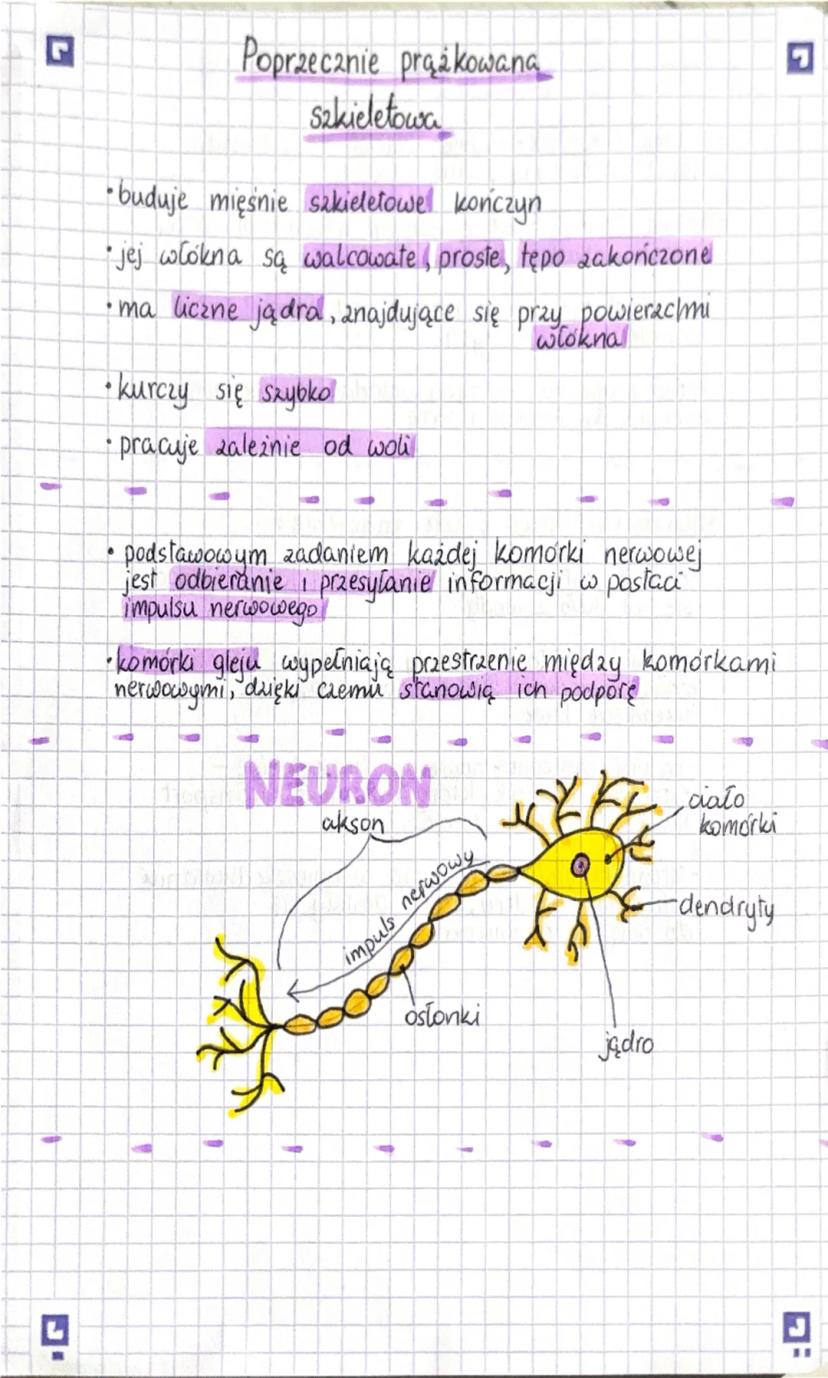 Poprzecznie prążkowana
szkieletowa
•buduje mięśnie szkieletowe kończyn
•jej włókna są walcowate, proste, tępo zakończone
•ma liczne jądra, znajdujące się przy powierzchni
włókna
•kurczy się szybko
•pracuje zależnie od woli
• podstawowym zadaniem każdej komórki nerwowej
jest odbieranie i przesyłanie informacji w postaci
impulsu nerwowego
•komórki gleju wypełniają przestrzenie między komórkami
nerwowymi, dzięki czemu stanowią ich podporę
NEURON
akson
ciało
komórki
impuls nerwowy
dendryty
osłonki
jądro